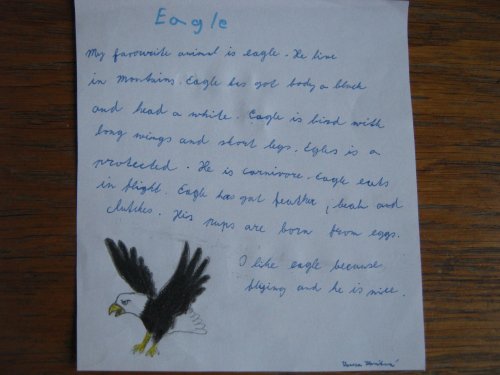 Eagle
My favourite animal is eagle. He live
in Montains. Eagle has got body a black
and head a white. Eagle is bird with
long wings and short legs. Egles is a
protected. He is carnivore. Eagle eats
in flight. Eagle has got feather, beak and
clutches. His pups are born from eggs.
I like eagle because
fliging and he is nice.